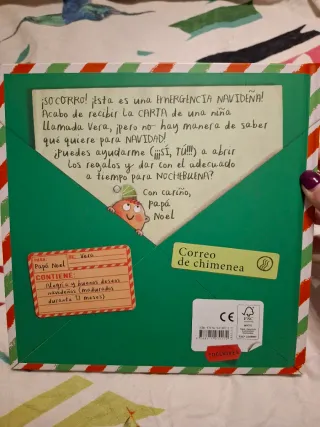 ¡SOCORRO! ¡Esta es una EMERGENCIA NAVIDEÑA!
Acabo de recibir la CARTA de una niña
llamada Vera, ¡pero no hay manera de saber
qué quiere para NAVIDAD!
¿Puedes ayudarme (¡¡¡SÍ, TÚ!!!) a abrir
los regalos y dar con el adecuado
a tiempo para NOCHEBUENA?
Con cariño,
Papá
Noel
Vera
Papá Noel
CONTIENE:
Alegría y buenos deseos
navideños (madurados
durante 12 meses)
Correo
de chimenea
CE
FSC